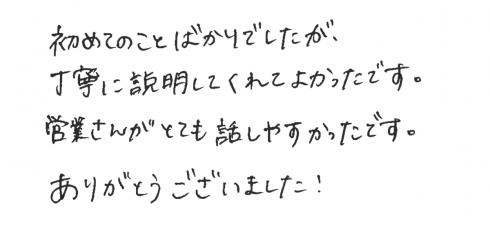 初めてのことばかりでしたが、
丁寧に説明してくれてよかったです。
営業さんがとても話しやすかったです。
ありがとうございました!